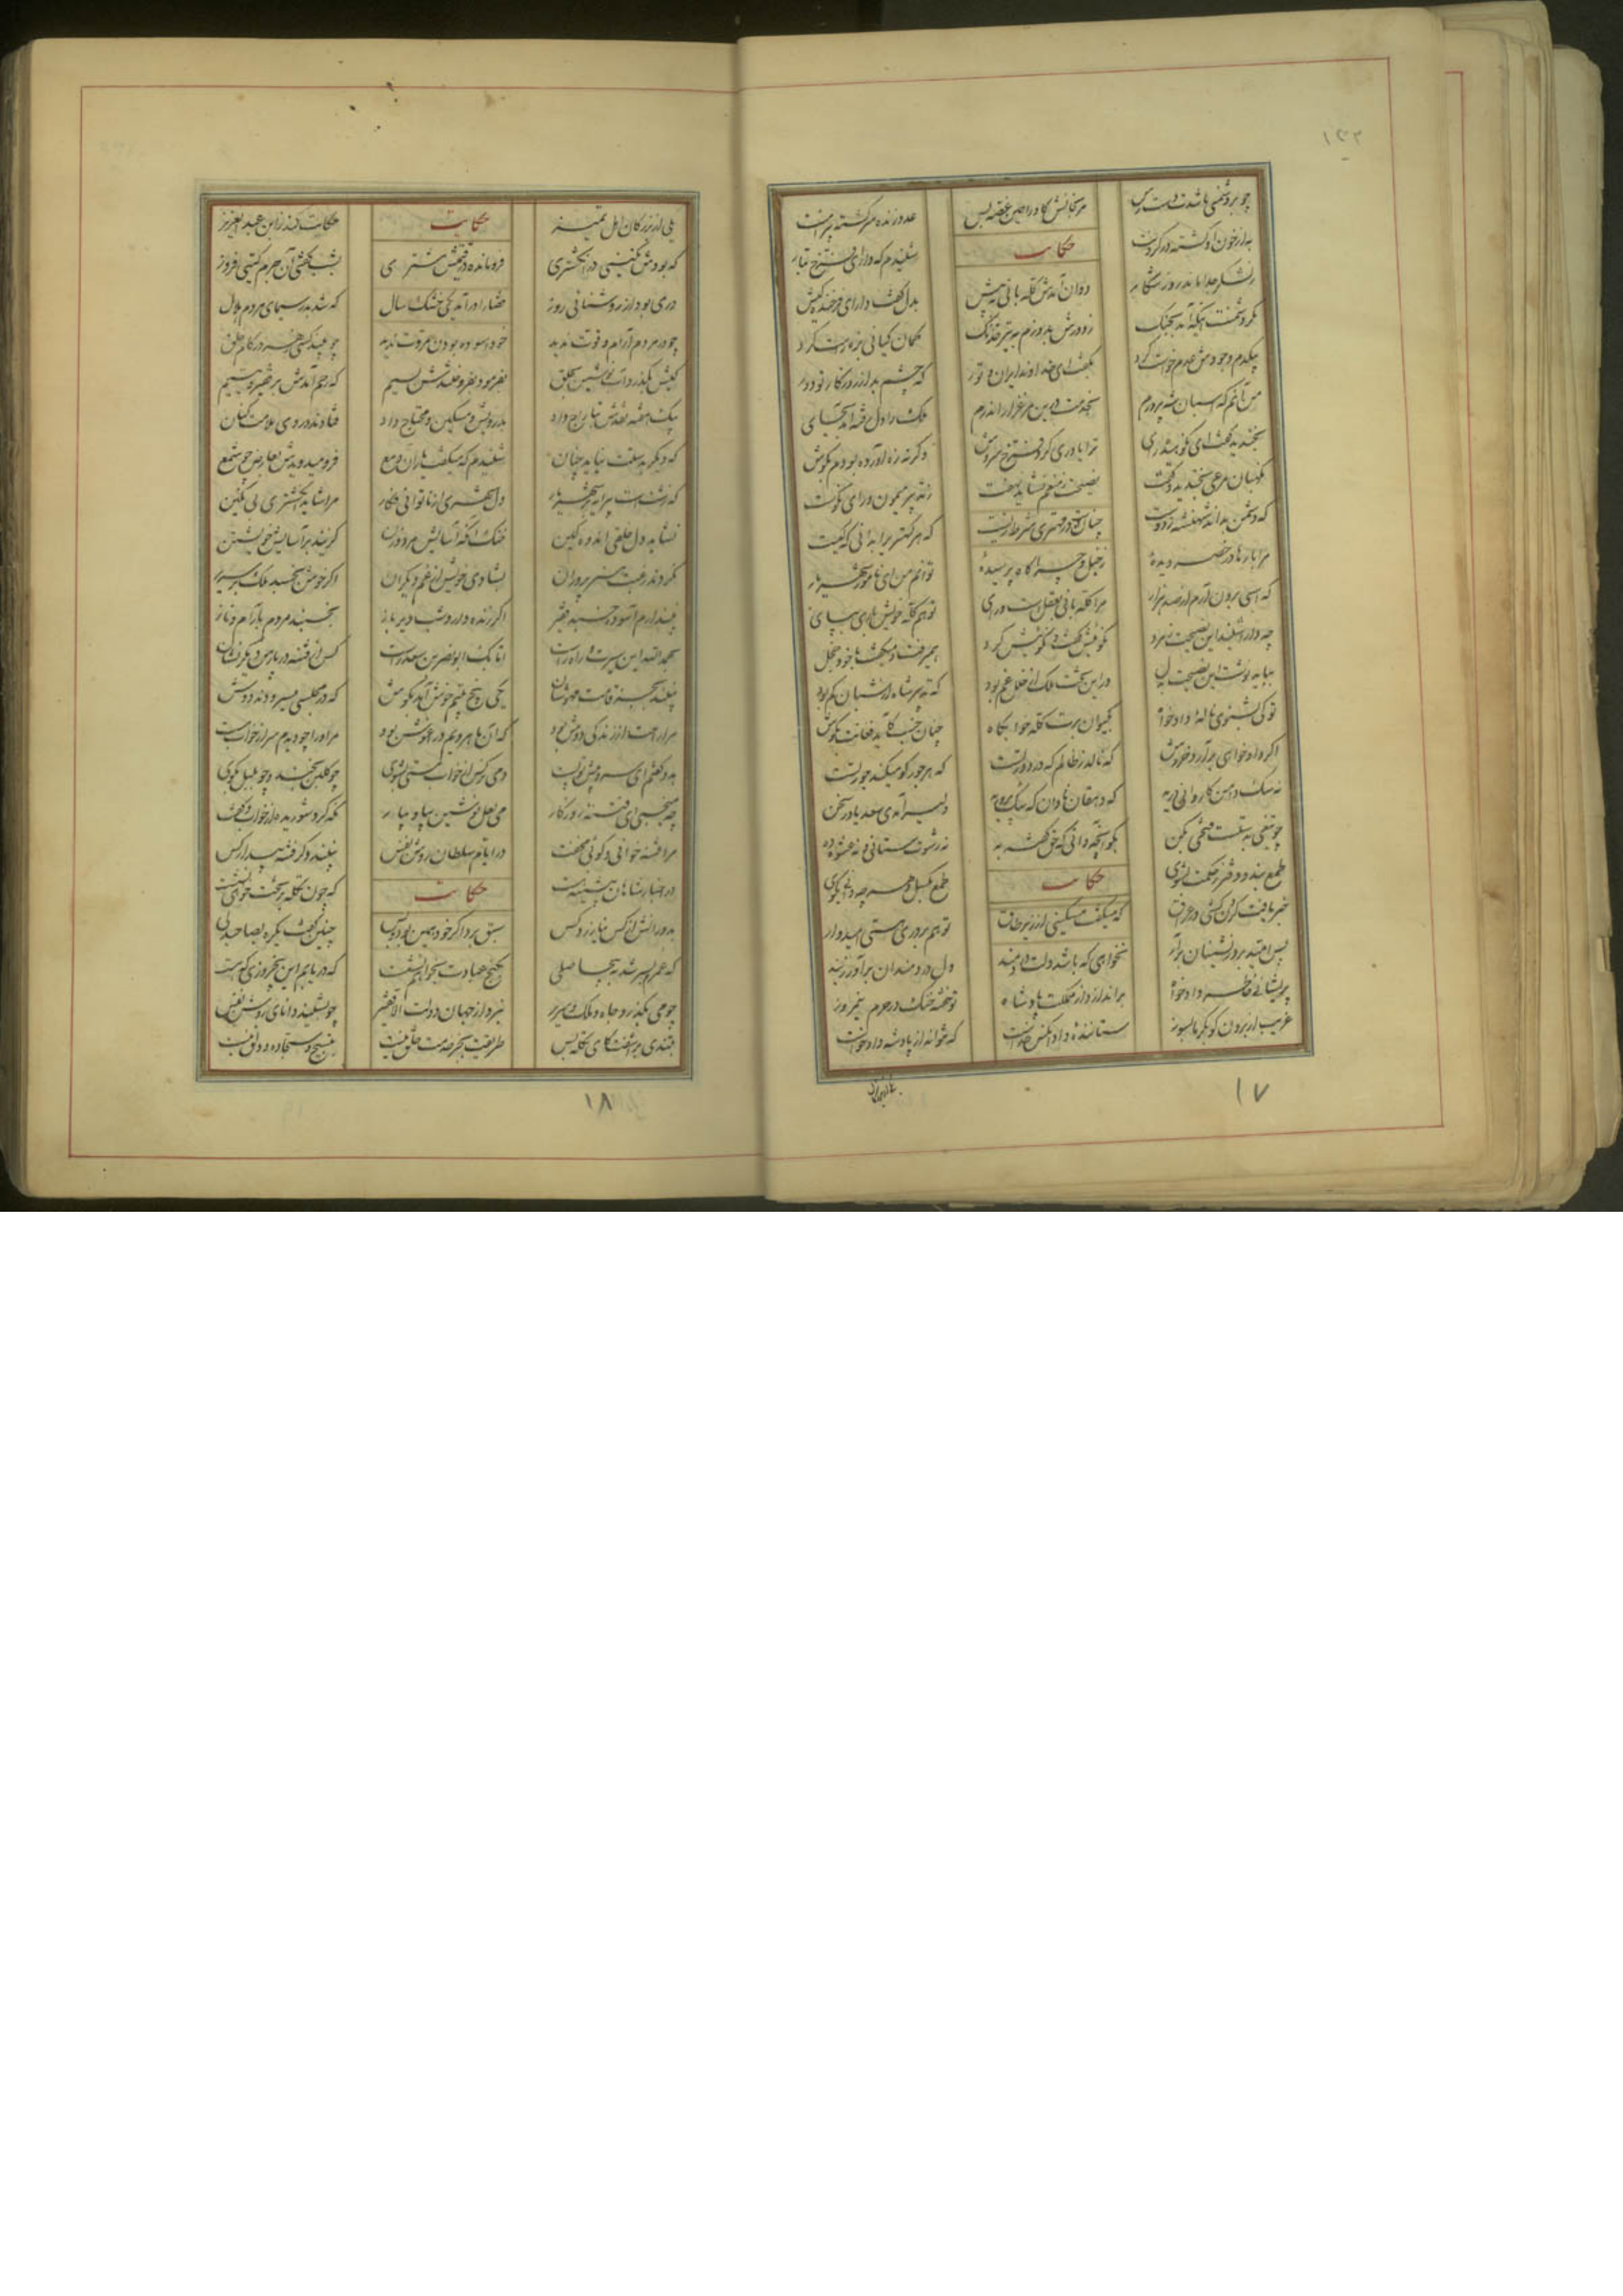 چو بر دشمنی باشدت دسترس
مرنجانش کاو را همین غصه بس
عدو زنده سرگشته پیرامنت
به از خون او کشته در گردنت
حکایت
شنیدم که دارای فرخ تبار
ز لشکر جدا ماند روز شکار
دوان آمدش گله بانی به پیش
بدل گفت دارای فرخنده کیش
مگر دشمنست اینکه آمد بجنگ
ز دورش بدوزم به تیر خدنگ
کمان کیانی بزه راست کرد
بیکدم وجودش عدم خواست کرد
بگفت ای خداوند ایران و تور
که چشم بد از روزگار تو دور
من آنم که اسبان شه پرورم
بخدمت درین مرغزار اندرم
ملک را دل رفته آمد بجای
بخندید و گفت ای نکوهیده رای
ترا یاوری کرد فرخ سروش
وگرنه زه آورده بودم بگوش
نگهبان مرعی بخندید و گفت
نصیحت ز منعم نشاید نهفت
نه تدبیر میمون و رای نکوست
که دشمن نداند شهنشه ز دوست
چنانست در مهتری شرط زیست
که هر کهتری را بدانی که کیست
مرا بارها در حضر دیده
ز خیل و چراگاه پرسیده
توانم من ای نامور شهریار
که اسبی برون آرم از صد هزار
مرا گله بانی بعقلست و رای
تو هم گله خویش داری بپای
چه دارا شنید این نصیحت ز مرد
نکوئیش گفت و نکوئیش کرد
همیرفت و میگفت با خود خجل
بباید نوشت این نصیحت بدل
در این تخت و ملک از خلل غم بود
که تدبیر شاه از شبان کم بود
تو کی بشنوی نالهٔ دادخواه
بکیوان برت کله خوابگاه
چنان خسب کاید فغانت بگوش
اگر دادخواهی برآرد خروش
که نالد ز ظالم که در دور تست
که هر جور کو میکند جور تست
نه سگ دامن کاروانی درید
که دهقان نادان که سگ پرورید
دلیر آمدی سعدیا در سخن
چو تیغی بدستست فتحی بکن
بگو آنچه دانی که حق گفته به
نه رشوت ستانی و نه عشوه ده
طمع بند و دفتر ز حکمت بشوی
حکایت
طمع بگسل و هر چه دانی بگوی
خبر یافت گردن کشی در عراق
که میگفت مسکینی از زیر طاق
تو هم بر دری هستی امیدوار
پس امید بر درنشینان برآر
نخواهی که باشد دلت دردمند
دل دردمندان برآور ز بند
پریشانی خاطر دادخواه
براندازد از مملکت پادشاه
تو خفته خنک در حرم نیمروز
غریب از برون گو بگرما بسوز
ستاننده داد آنکس خداست
که نتواند از پادشه دادخواست
۱۷
یکی از بزرگان اهل تمیز
حکایت
حکایت کند ز ابن عبدالعزیز
که بودش نگینی در انگشتری
فرومانده در قیمتش مشتری
بشب گفتی آن جرم گیتی فروز
دری بود از روشنائی روز
قضا را درآمد یکی خشک سال
که شد بدر سیمای مردم هلال
چو در مردم آرام و قوت ندید
خود آسوده بودن مروت ندید
چو بیند کسی زهر در کام خلق
کیش بگذرد آب نوشین بحلق
بفرمود بفروختندش بسیم
که رحم آمدش بر فقیر و یتیم
بیک هفته نقدش بتاراج داد
بدرویش و مسکین و محتاج داد
فتادند در وی ملامت کنان
که دیگر بدستت نیاید چنان
شنیدم که میگفت باران دمع
فرو میدویدش بعارض چو شمع
که زشتست پیرایه بر شهریار
دل شهری از ناتوانی فکار
مرا شاید انگشتری بی نگین
نشاید دل خلقی اندوهگین
خنک آنکه آسایش مرد و زن
گزیند بر آسایش خویشتن
نکردند رغبت هنرپروران
بشادی خویش از غم دیگران
اگر خوش بخسبد ملک بر سریر
نپندارم آسوده خسبد فقیر
اگر زنده دارد شب دیر باز
بخسبند مردم بآرام و ناز
بحمدالله این سیرت و راه راست
اتابک ابونصر بن سعد راست
کس از فتنه در پارس دیگر نشان
نبیند بجز قامت مهوشان
یکی پنج بیتم خوش آمد بگوش
که در مجلسی میسرودند دوش
مرا راحت از زندگی دوش بود
که آن ماهرویم در آغوش بود
مر او را چو دیدم سر از خواب مست
بدو گفتم ای سرو پیش تو پست
دمی نرگس از خواب مستی بشوی
چو گلبن بخند و چو بلبل بگوی
چه میخسبی ای فتنه روزگار
می لعل نوشین بیا و بیار
نگه کرد شوریده از خواب و گفت
مرا فتنه خوانی و گوئی مخفت
در ایام سلطان روشن نفس
نبیند دگر فتنه بیدار کس
در اخبار شاهان پیشینه هست
حکایت
که چون تکله بر تخت زنگی نشست
بدورانش از کس نیازرد کس
سبق برد اگر خود همین بود و بس
چنین گفت یکره بصاحبدلی
که عمرم بسر شد به بیحاصلی
بکنج عبادت بخواهم نشست
که دریابم این پنج روزی که هست
چو می بگذرد جاه و ملک و سریر
نبرد از جهان دولت الا فقیر
چو بشنید دانای روشن نفس
بتندی برآشفت کای تکله بس
طریقت بجز خدمت خلق نیست
بتسبیح و سجاده و دلق نیست
۱۸